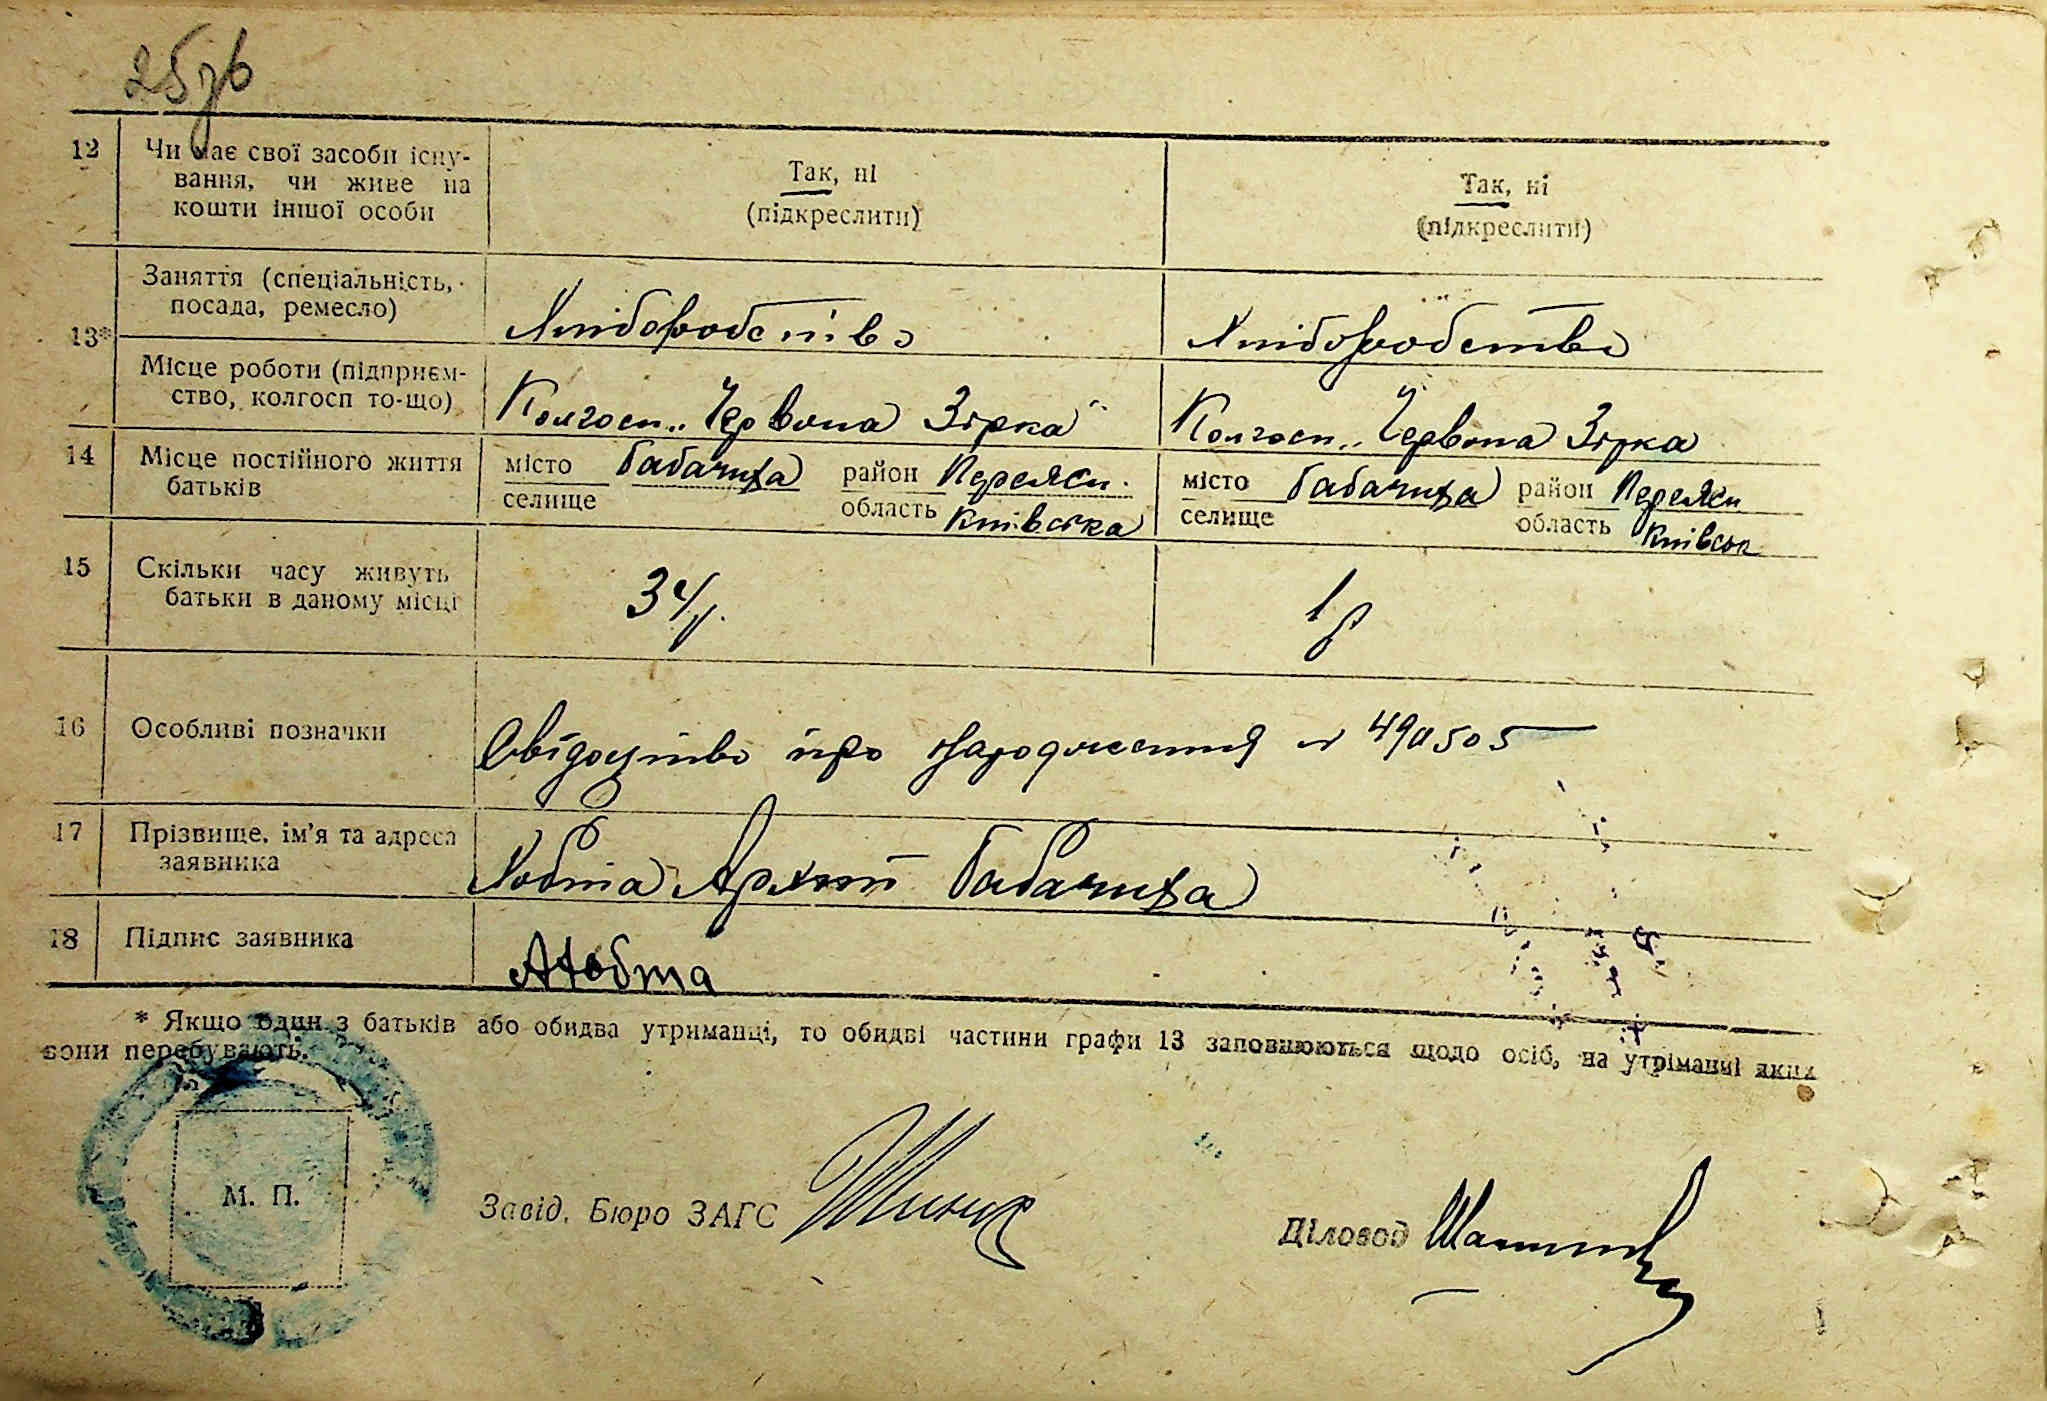 25зв
12 Чи має свої засоби існу-
вання, чи живе на
кошти іншої особи
Так, ні
(підкреслити)
Так, ні
(підкреслити)
13*
Заняття (спеціальність,
посада, ремесло)
Хліборобство
Хліборобство
Місце роботи (підприєм-
ство, колгосп то-що)
Колгосп „Червона Зірка"
Колгосп „Червона Зірка
14 Місце постійного життя
батьків
місто Бабачиха район Переясл.
селище область Київська
місто Бабачиха район Переясл
селище область Київськ
15 Скільки часу живуть
батьки в даному місці
34 р.
1 р
16 Особливі позначки
Свідоцтво про народження №
17 Прізвище, ім'я та адреса
заявника
Хобта Архип Бабачиха
18 Підпис заявника
АХобта
* Якщо один з батьків або обидва утриманці, то обидві частини графи 13 заповнюються щодо осіб, на утріманні яких
вони перебувають.
М. П.
Завід. Бюро ЗАГС
Діловод